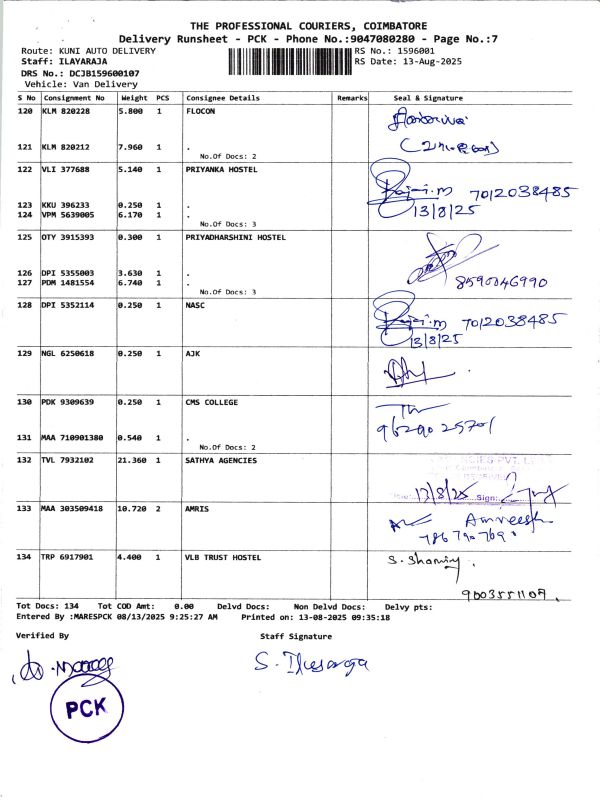 THE PROFESSIONAL COURIERS, COIMBATORE
Delivery Runsheet - PCK - Phone No.:9047080280 - Page No.:7
Route: KUNI AUTO DELIVERY RS No.: 1596001
Staff: ILAYARAJA RS Date: 13-Aug-2025
DRS No.: DCJB159600107
Vehicle: Van Delivery
S No Consignment No Weight PCS Consignee Details Remarks Seal & Signature
120 KLM 820228 5.800 1 FLOCON
121 KLM 820212 7.960 1 .
No.Of Docs: 2
122 VLI 377688 5.140 1 PRIYANKA HOSTEL
7012038485
123 KKU 396233 0.250 1 .
13/8/25
124 VPM 5639005 6.170 1 .
No.Of Docs: 3
125 OTY 3915393 0.300 1 PRIYADHARSHINI HOSTEL
126 DPI 5355003 3.630 1 .
127 PDM 1481554 6.740 1 . 8590046990
No.Of Docs: 3
128 DPI 5352114 0.250 1 NASC
7012038485
13/8/25
129 NGL 6250618 0.250 1 AJK
130 PDK 9309639 0.250 1 CMS COLLEGE
9629025701
131 MAA 710901380 0.540 1 .
No.Of Docs: 2
132 TVL 7932102 21.360 1 SATHYA AGENCIES
13/8/25 Sign:
133 MAA 303509418 10.720 2 AMRIS
Amreesh
134 TRP 6917901 4.400 1 VLB TRUST HOSTEL
9003551107
Tot Docs: 134 Tot COD Amt: 0.00 Delvd Docs: Non Delvd Docs: Delvy pts:
Entered By :MARESPCK 08/13/2025 9:25:27 AM Printed on: 13-08-2025 09:35:18
Verified By Staff Signature
PCK